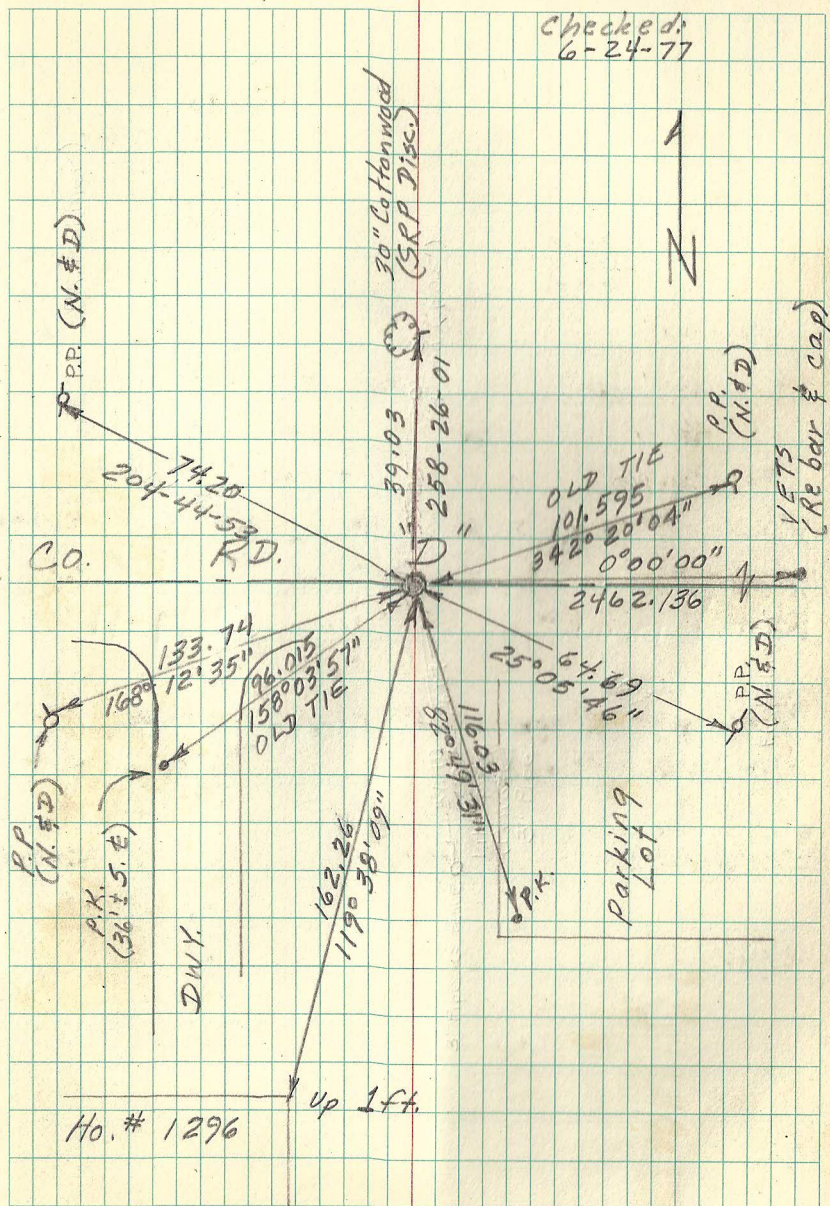 Checked:
6-24-77
30" Cottonwood
(SRP Disc.)
P.P. (N. & D)
74.20
204-44-53
39.03
258-26-01
P.P.
(N. & D)
OLD TIE
101.595
342° 20' 04"
VETS
(Rebar & cap)
CO. RD.
"D"
0°00'00"
2462.136
133.74
168° 12' 35"
96.015
158°03'57"
OLD TIE
64.69
25°05'46"
P.P.
(N. & D)
P.P
(N. & D)
P.K.
(36'± S. ⅊)
DWY.
162.26
119° 38' 09"
116.03
82° 49' 31"
P.K.
Parking
Lot
Up 1 ft.
Ho. # 1296